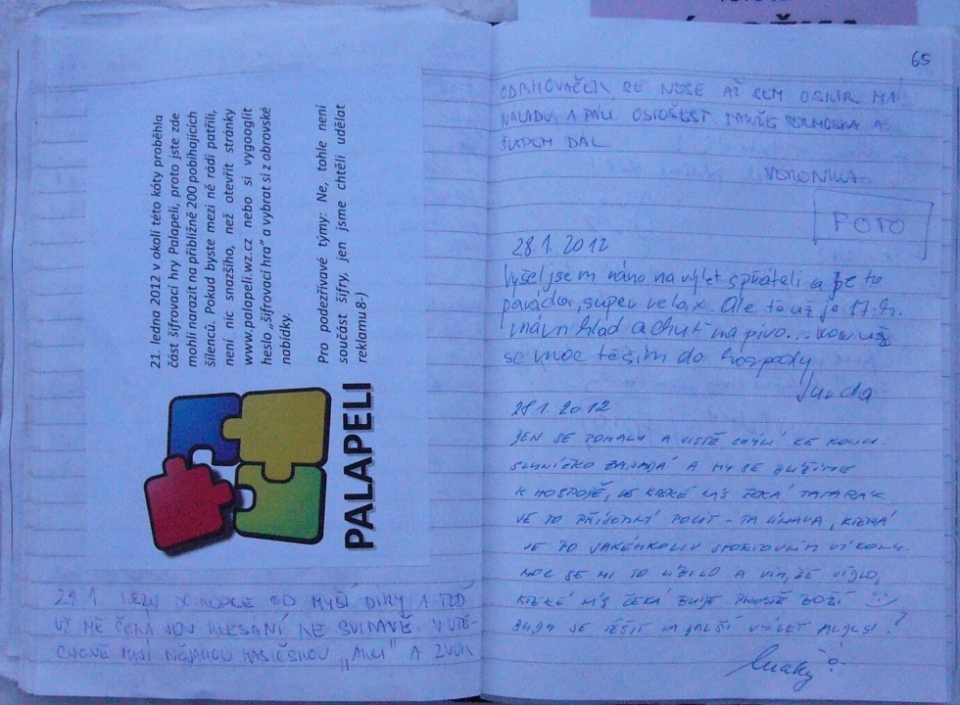 21. ledna 2012 v okolí této kóty proběhla
část šifrovací hry Palapeli, proto jste zde
mohli narazit na přibližně 200 pobíhajících
šílenců. Pokud byste mezi ně rádi patřili,
není nic snazšího, než otevřít stránky
www.palapeli.wz.cz nebo si vygooglit
heslo „šifrovací hra" a vybrat si z obrovské
nabídky.
Pro podezřívavé týmy: Ne, tohle není
součást šifry, jen jsme chtěli udělat
reklamu 8-)
PALAPELI
29.1 LEZU DO KOPCE OD MYŠÍ DÍRY A TEĎ
UŽ MĚ ČEKÁ JEN KLESÁNÍ KE SVINAVĚ. V
MAJ NĚJAKOU HASIČSKOU A ZVUK
65
SE NESE AŽ SEM OSKAR MÁ
NÁLADU A PÁLÍ OSTOŠEST TAKŽE A
ŠUPEM DÁL
VERONIKA
FOTO
28.1. 2012
Vyšel jsem ráno na výlet s přáteli a je to
paráda, super relax. Ale to už je 17.h.
i mám hlad a chuť na pivo...
se moc těším do hospody
28.1. 2012
DEN SE POMALU A JISTĚ CHÝLÍ KE KONCI
SLUNÍČKO ZAPADÁ A MY SE BLÍŽÍME
K HOSPODĚ, VE KTERÉ NÁS ČEKÁ TATARÁK
JE TO PŘÍJEMNÝ POCIT - TA ÚNAVA, KTERÁ
JE PO JAKÉMKOLIV SPORTOVNÍM VÝKONU.
MOC SE MI TO LÍBILO A VÍM, ŽE JÍDLO,
KTERÉ NÁS ČEKÁ BUDE PROSTĚ BOŽÍ
BUDU SE TĚŠIT NA DALŠÍ VÝLET